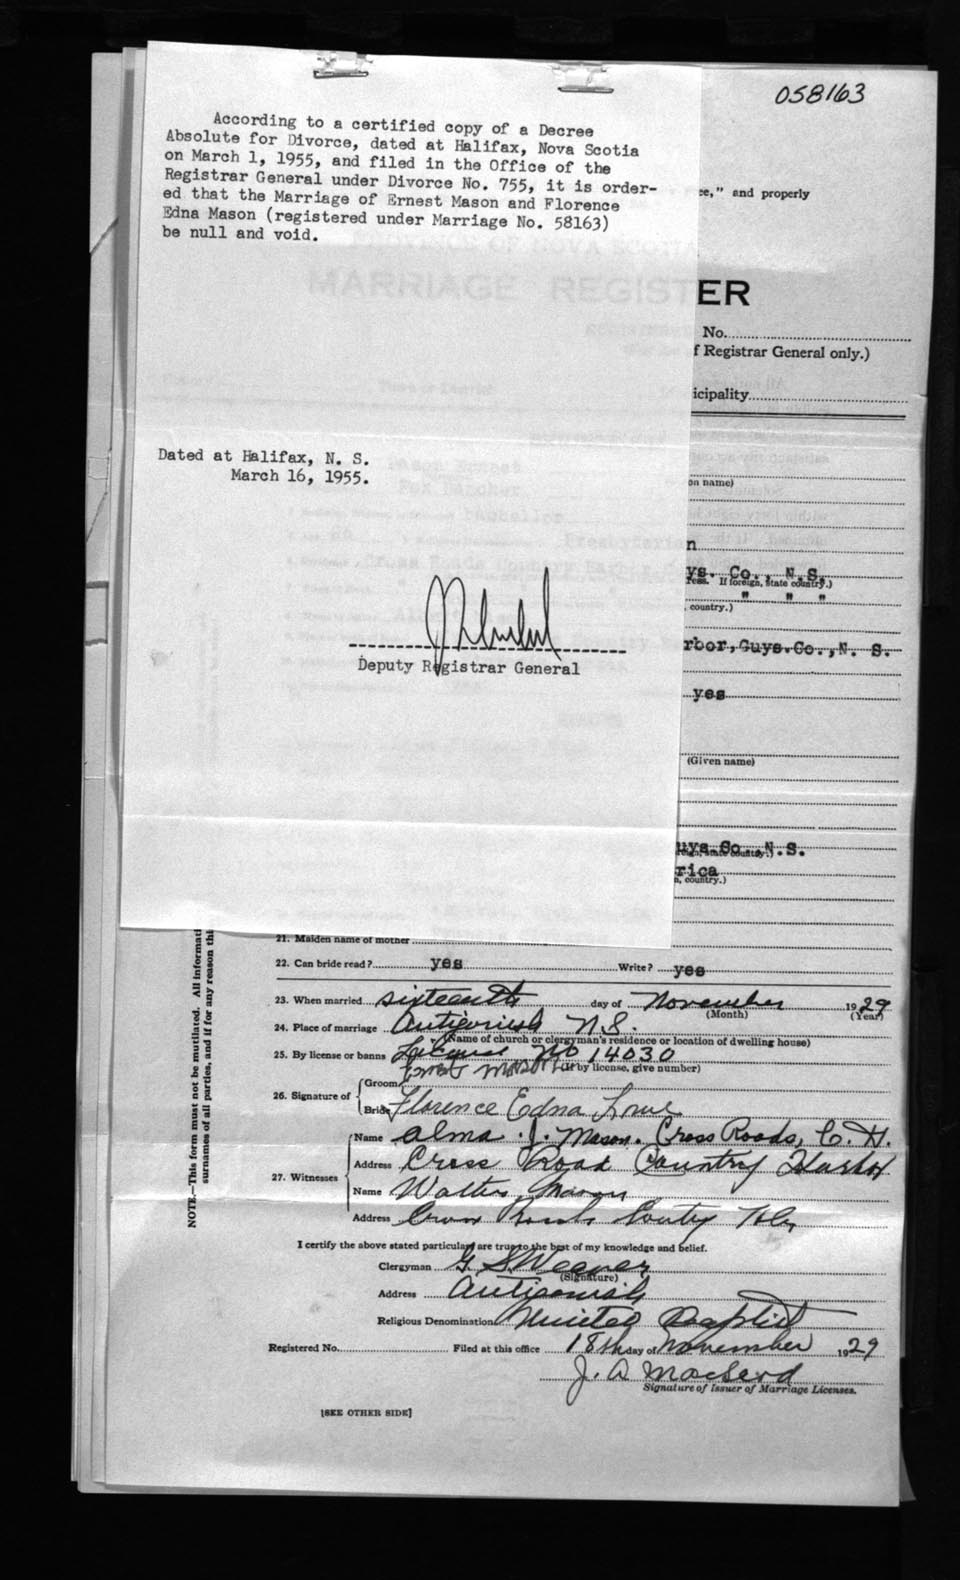 058163
According to a certified copy of a Decree
Absolute for Divorce, dated at Halifax, Nova Scotia
on March 1, 1955, and filed in the Office of the
Registrar General under Divorce No. 755, it is order-
ed that the Marriage of Ernest Mason and Florence
Edna Mason (registered under Marriage No. 58163)
be null and void.
Dated at Halifax, N. S.
March 16, 1955.
Deputy Registrar General
ce," and properly
PROVINCE OF NOVA SCOTIA
MARRIAGE REGISTER
No.
f Registrar General only.)
icipality
on name)
n
ys. Co., N.S.
ress. If foreign, state country.)
" " "
, country.)
rbor,Guys.Co.,N. S.
yes
(Given name)
uys Co N.S.
rica
n, country.)
21. Maiden name of mother
22. Can bride read? yes Write? yes
23. When married sixteenth day of November 1929
(Month) (Year)
24. Place of marriage Antigonish N.S.
(Name of church or clergyman's residence or location of dwelling house)
25. By license or banns License No 14030
(If by license, give number)
26. Signature of Groom Ernest Mason
Bride Florence Edna
27. Witnesses Name Alma J. Mason. Cross Roads, C. H.
Address Cross Road Country Harbor
Name Walter Mason
Address Cross Roads Coutry Hbr
I certify the above stated particulars are true to the best of my knowledge and belief.
Clergyman G S. Weaver
(Signature)
Address Antigonish
Religious Denomination United Baptist
Registered No. Filed at this office 18th day of November 1929
J. A. MacLeod
Signature of Issuer of Marriage Licenses.
[SEE OTHER SIDE]
NOTE.—This form must not be mutilated. All informati
surnames of all parties, and if for any reason this